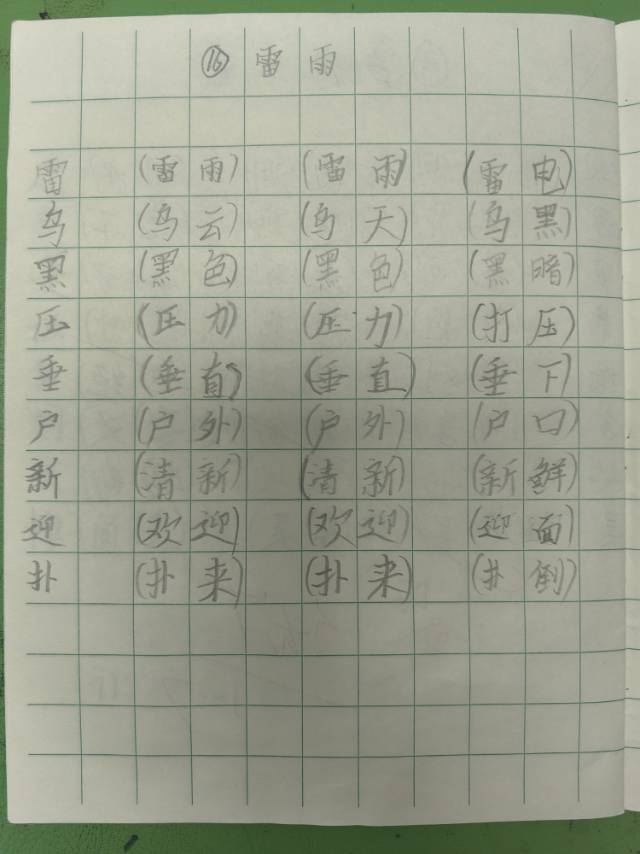 ⑯ 雷雨
雷 (雷雨) (雷雨) (雷电)
乌 (乌云) (乌天) (乌黑)
黑 (黑色) (黑色) (黑暗)
压 (压力) (压力) (打压)
垂 (垂直) (垂直) (垂下)
户 (户外) (户外) (户口)
新 (清新) (清新) (新鲜)
迎 (欢迎) (欢迎) (迎面)
扑 (扑来) (扑来) (扑倒)